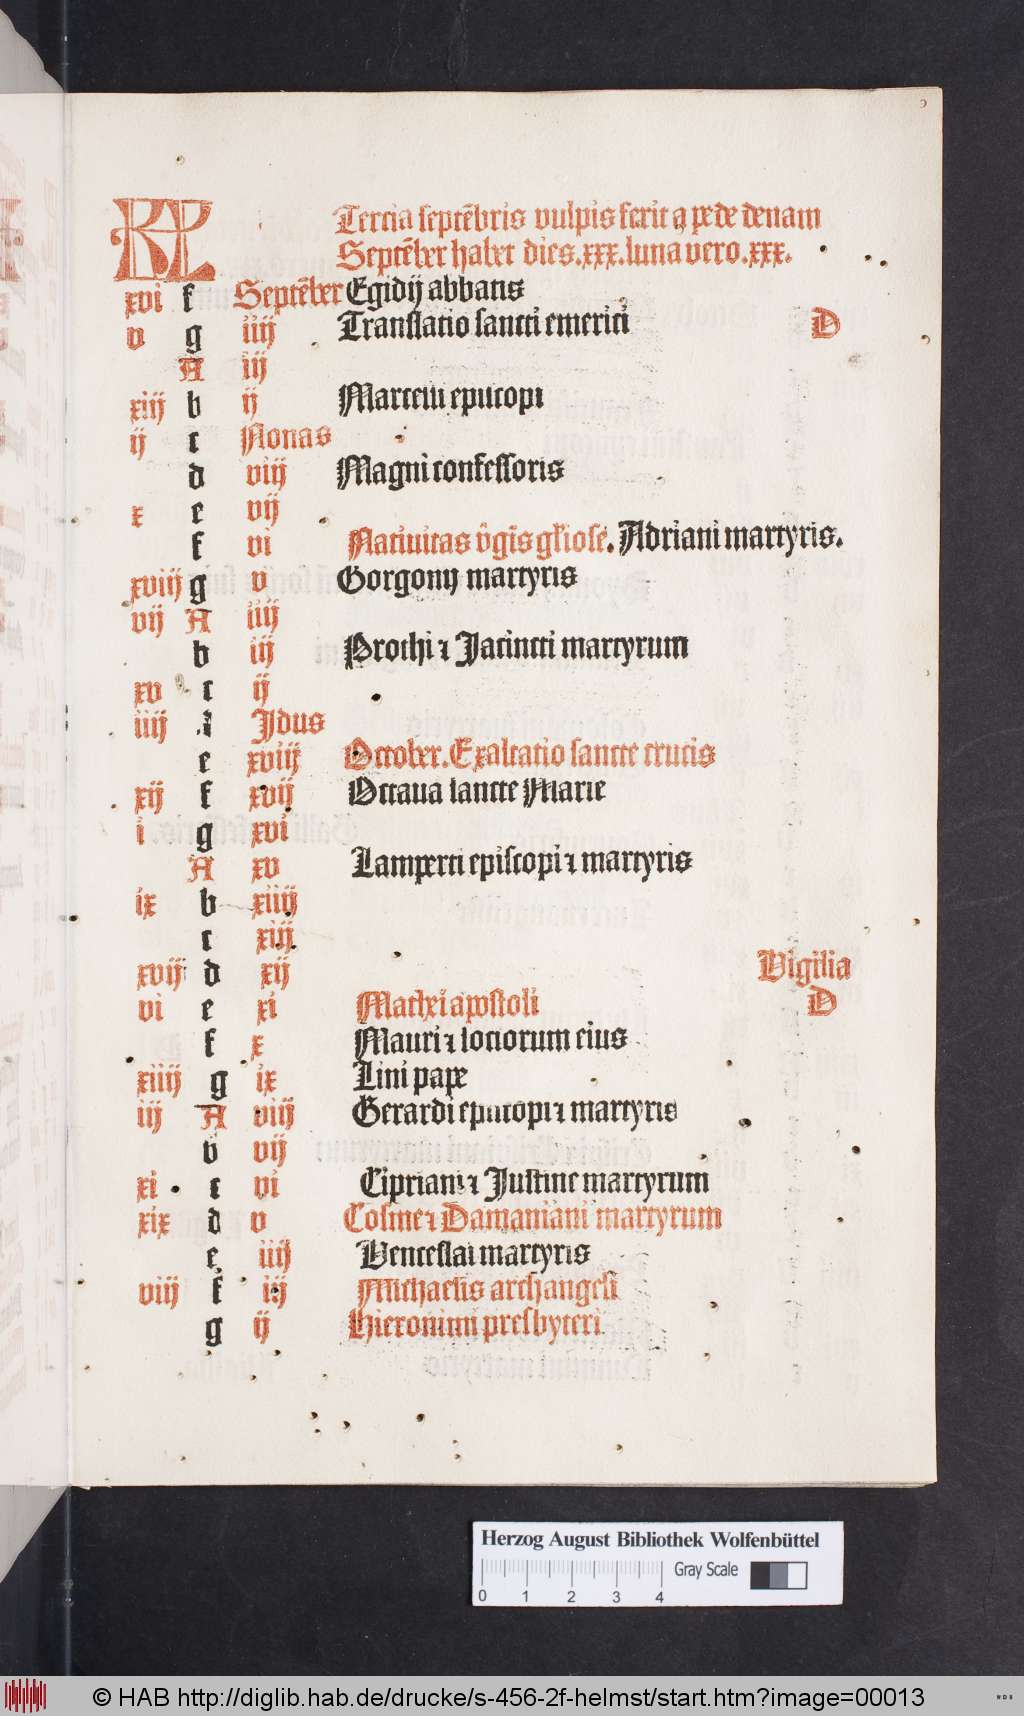 KL Tercia septēbris vulpis ferit a pede denam
Septēber habet dies.xxx.luna vero.xxx.
xvi f Septēber Egidij abbatis
v g iiij Translatio sancti emerici D
A iij
xiij b ij Marcelli episcopi
ij c Nonas
d viij Magni confessoris
x e vij
f vi Natiuitas v̄gīs gl'iose. Adriani martyris.
xviij g v Gorgonij martyris
vij A iiij
b iij Prothi ⁊ Jacincti martyrum
xv c ij
iiij d Jdus
e xviij October. Exaltatio sancte crucis
xij f xvij Octaua sancte Marie
i g xvi
A xv Lamperti episcopi ⁊ martyris
ix b xiiij
c xiij
xvij d xij Vigilia
vi e xi Mathei apostoli D
f x Mauri ⁊ sociorum eius
xiiij g ix Lini pape
iij A viij Gerardi episcopi ⁊ martyris
b vij
xi c vi Cipriani ⁊ Justine martyrum
xix d v Cosme ⁊ Damaniani martyrum
e iiij Venceslai martyris
viij f iij Michaelis archangeli
g ij Hieronimi presbyteri
Herzog August Bibliothek Wolfenbüttel
Gray Scale
0 1 2 3 4
© HAB http://diglib.hab.de/drucke/s-456-2f-helmst/start.htm?image=00013